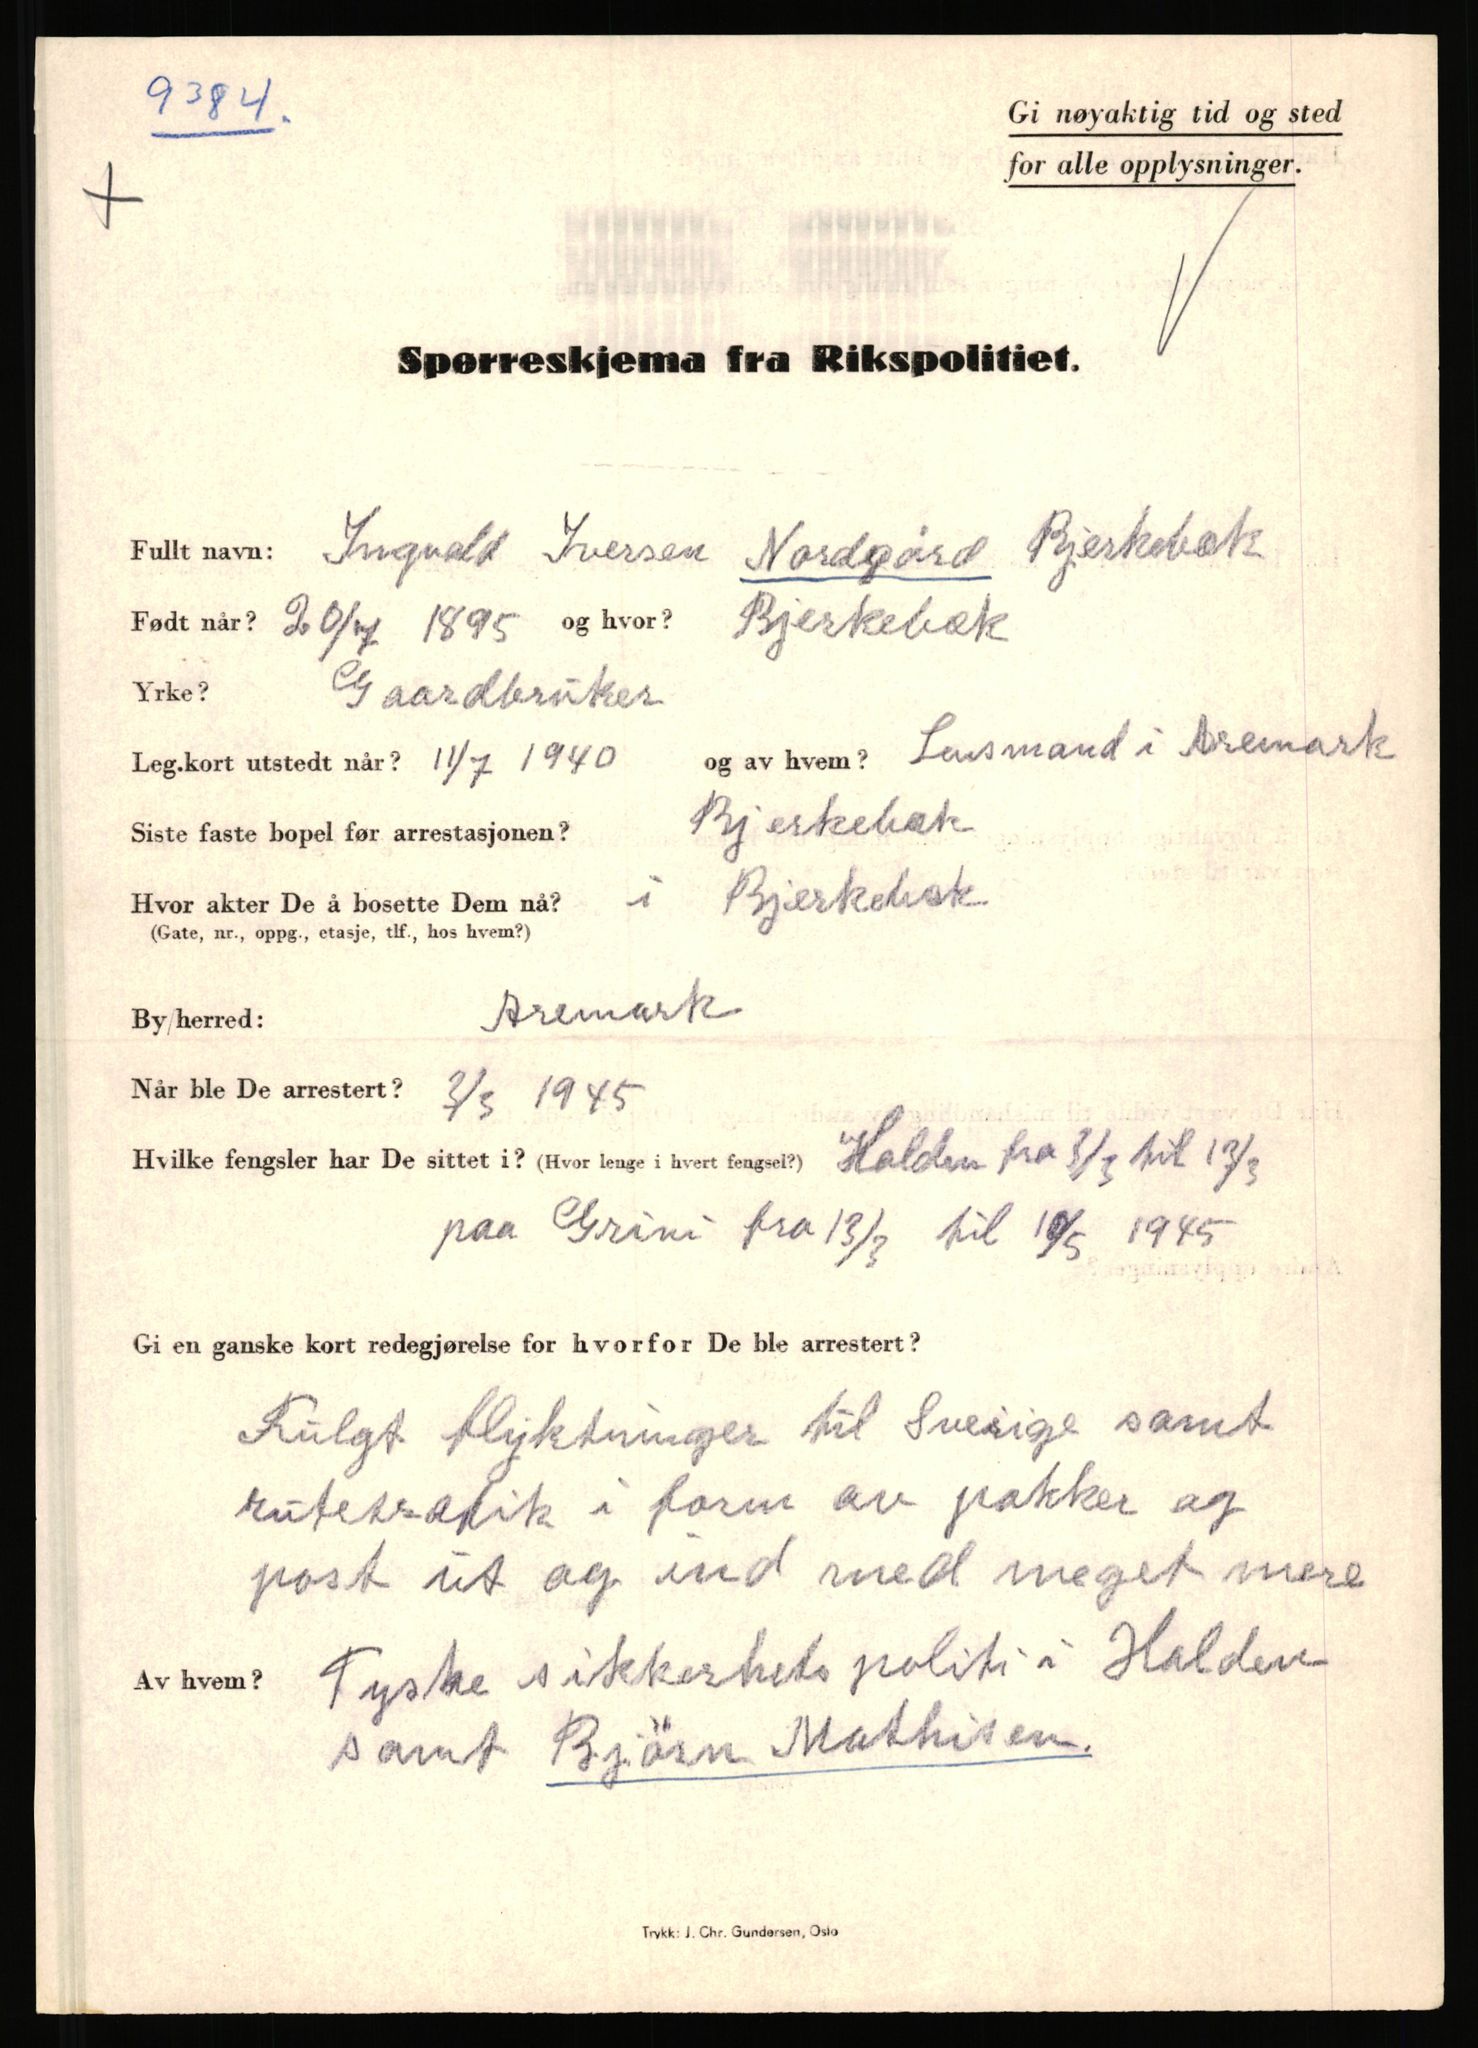 9384.
Gi nøyaktig tid og sted
for alle opplysninger.
Spørreskjema fra Rikspolitiet.
Fullt navn: Ingvald Iversen Nordgård Bjerkebæk
Født når? 20/7 1895 og hvor? Bjerkebæk
Yrke? Gaardbruker
Leg.kort utstedt når? 11/7 1940 og av hvem? Lensmand i Aremark
Siste faste bopel før arrestasjonen? Bjerkebæk
Hvor akter De å bosette Dem nå? i Bjerkebæk
(Gate, nr., oppg., etasje, tlf., hos hvem?)
By/herred: Aremark
Når ble De arrestert? 3/3 1945
Hvilke fengsler har De sittet i? (Hvor lenge i hvert fengsel?) Halden fra 3/3 til 13/3
paa Grini fra 13/3 til 1945
Gi en ganske kort redegjørelse for hvorfor De ble arrestert?
Fulgt flyktninger til Sverige samt
rutetrafik i form av pakker og
post ut og ind med meget mere
Av hvem? Tyske sikkerhets politi i Halden
samt Björn Mathisen.
Trykk: J. Chr. Gundersen, Oslo